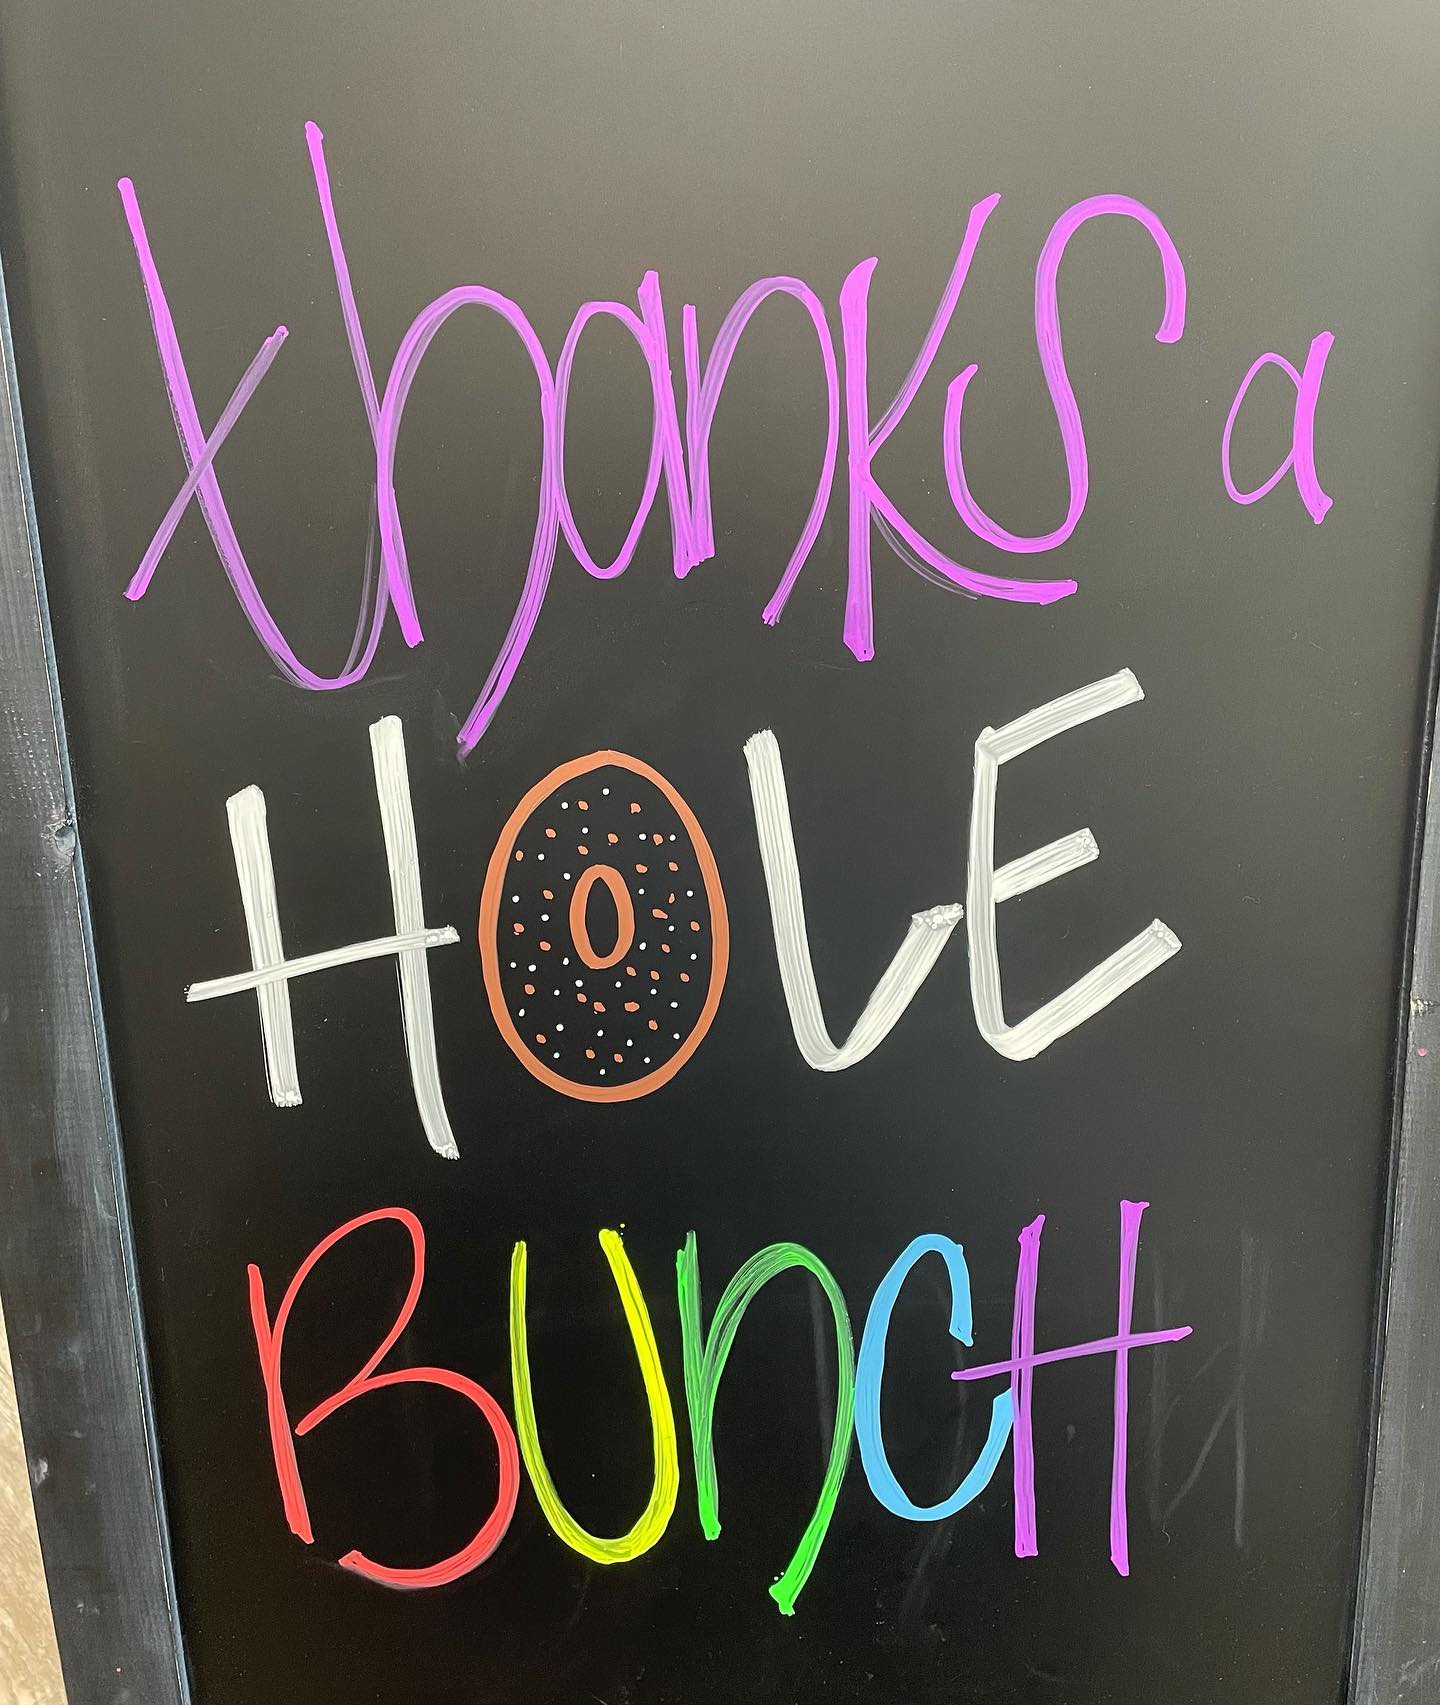 thanks a
HOLE
BUNCH